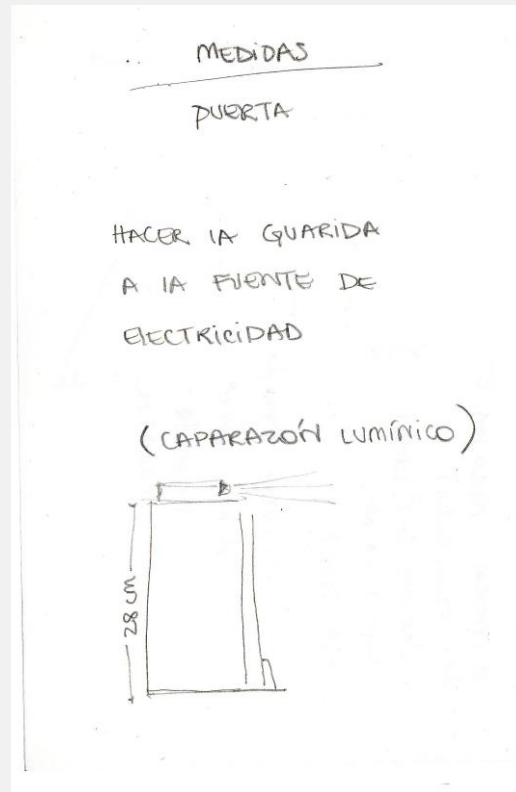 MEDIDAS
PUERTA
HACER LA GUARIDA
A LA FUENTE DE
ELECTRICIDAD
(CAPARAZÓN LUMÍNICO)
28 cm